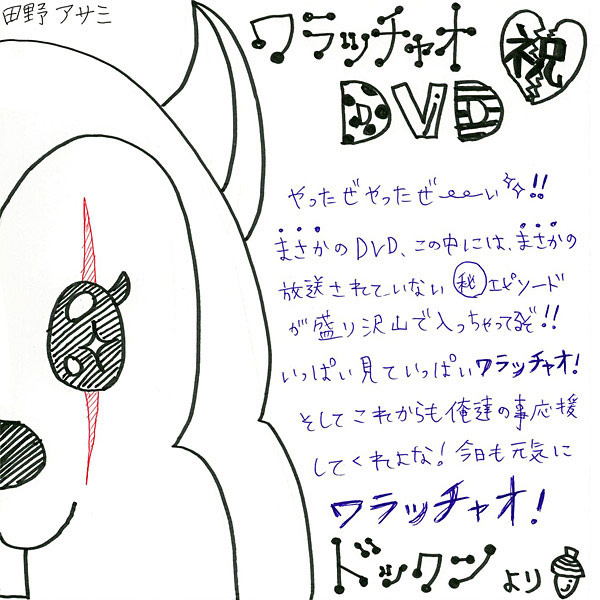 田野アサミ
ワラッチャオ
祝
DVD
やったぜやったぜーーい!!
まさかのDVD、この中には、まさかの
放送されていない㊙エピソード
が盛り沢山で入っちゃってるぞ!!
いっぱい見ていっぱいワラッチャオ!
そしてこれからも俺達の事応援
してくれよな!今日も元気に
ワラッチャオ!
ドックンより